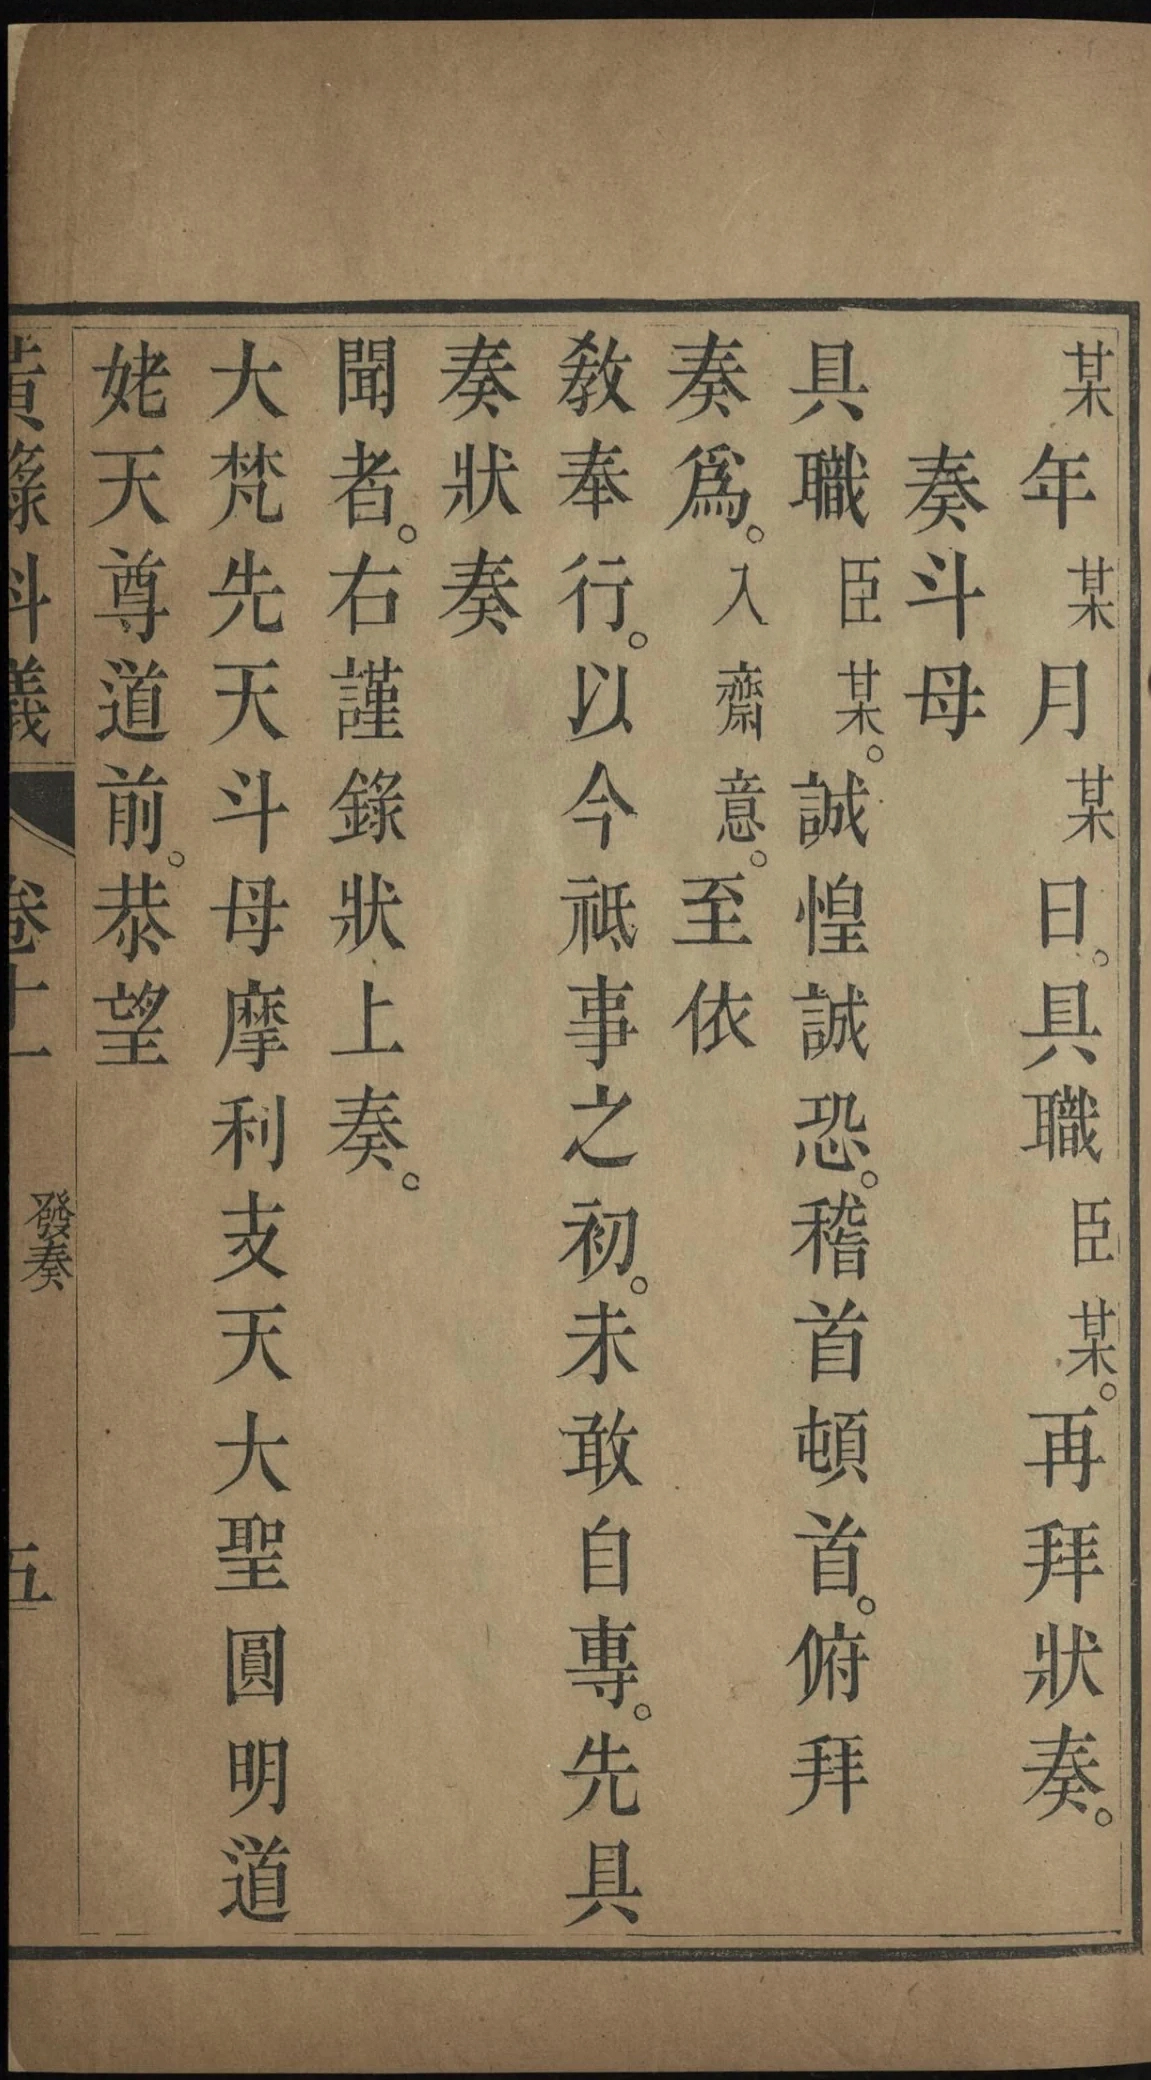 某年某月某日。具職臣某。再拜狀奏。
奏斗母
具職臣某。誠惶誠恐。稽首頓首。俯拜
奏爲。入齋意。至依
教奉行。以今祗事之初。未敢自專。先具
奏狀奏
聞者。右謹錄狀上奏。
大梵先天斗母摩利支天大聖圓明道
姥天尊道前。恭望
黃籙科儀 卷十一 發奏 五